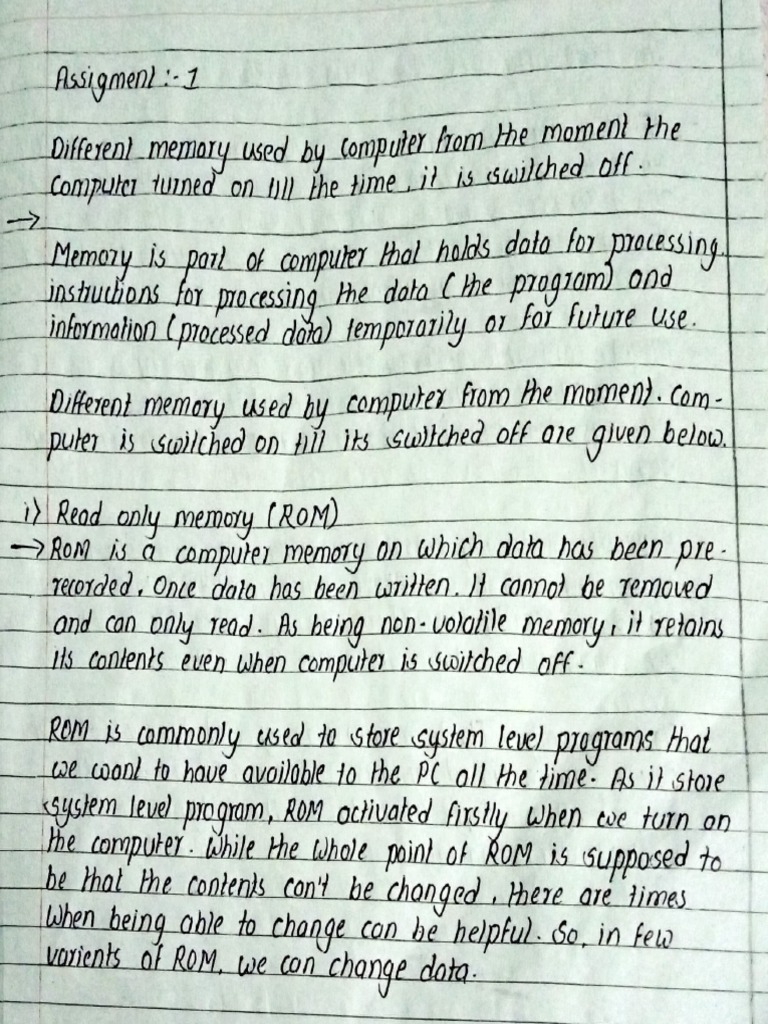 Assigment :- 1
Different memory used by computer from the moment the
computer turned on till the time, it is switched off.
→
Memory is part of computer that holds data for processing.
instructions for processing the data (the program) and
information (processed data) temporarily or for future use.
Different memory used by computer from the moment. Com-
puter is switched on till its switched off are given below.
i) Read only memory (ROM)
→ ROM is a computer memory on which data has been pre-
recorded. Once data has been written. It cannot be removed
and can only read. As being non-volatile memory, it retains
its contents even when computer is switched off.
ROM is commonly used to store system level programs that
we want to have available to the PC all the time. As it store
system level program, ROM activated firstly when we turn on
the computer. While the whole point of ROM is supposed to
be that the contents can't be changed, there are times
when being able to change can be helpful. So, in few
varients of ROM, we can change data.